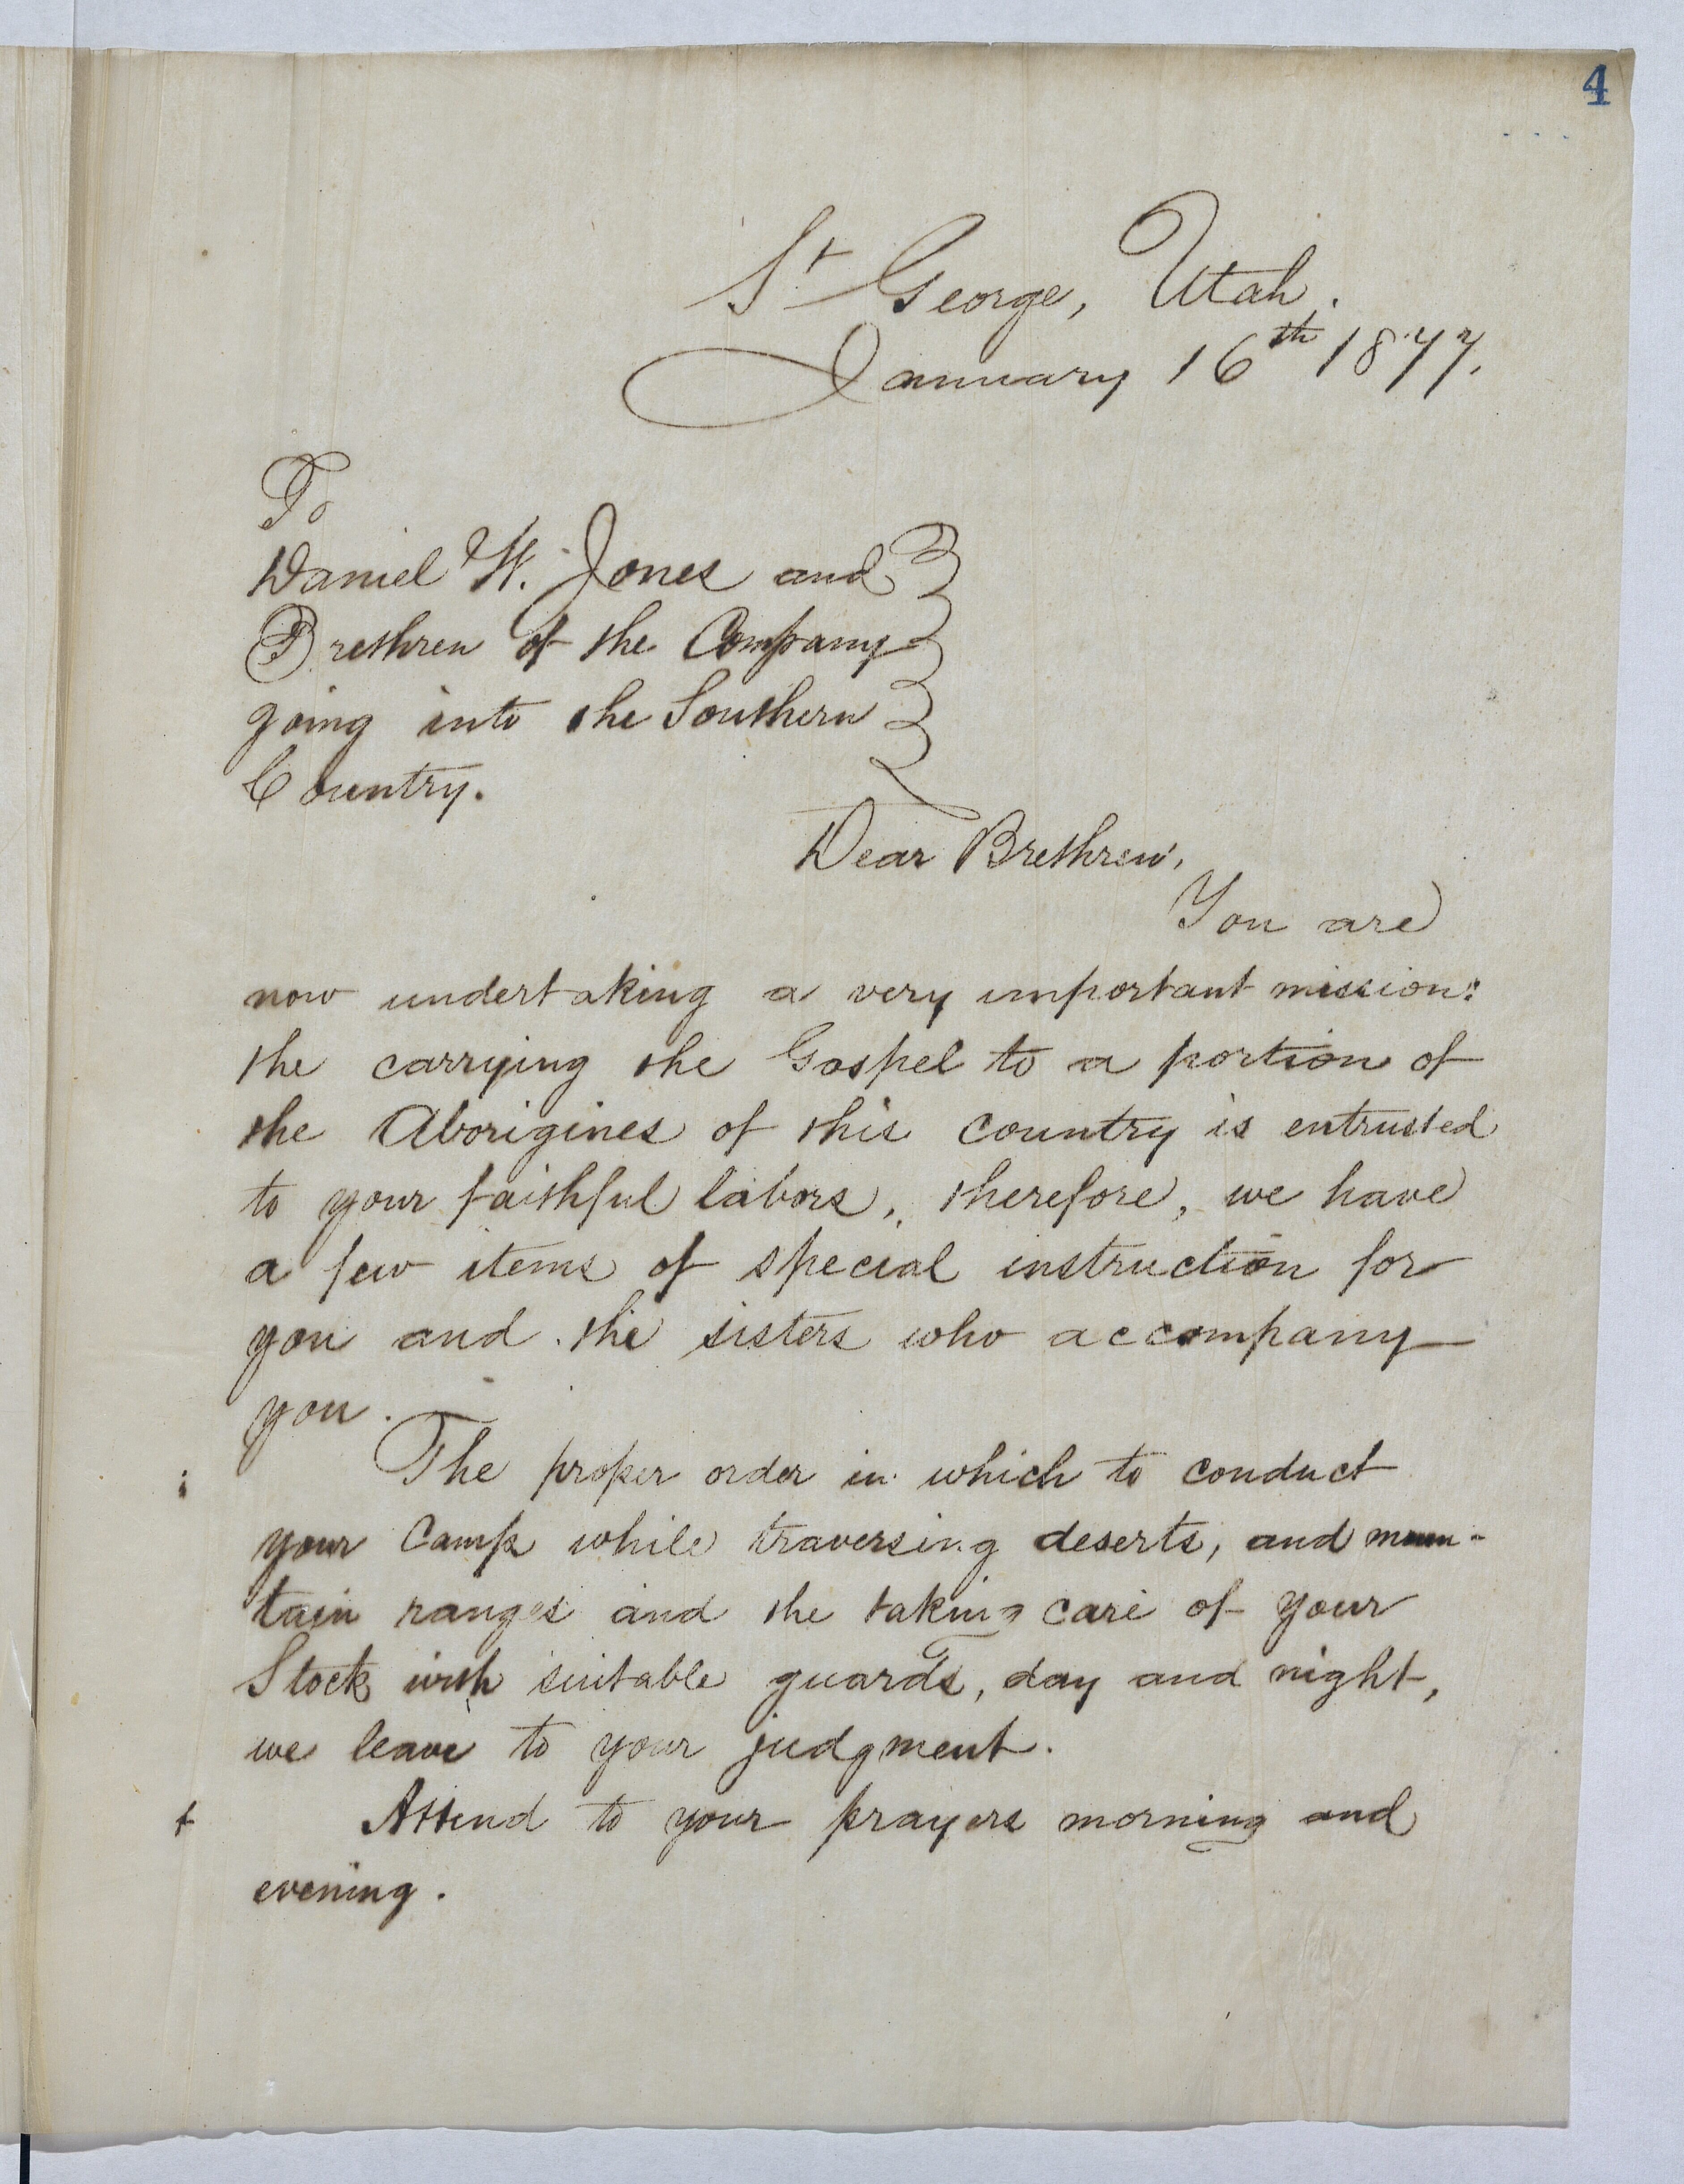 4
St George, Utah.
January 16th 1877.
To
Daniel W. Jones and
Brethren of the Company
going into the Southern
Country.
Dear Brethren,
You are
now undertaking a very important mission:
the carrying the Gospel to a portion of
the Aborigines of this country is entrusted
to your faithful labors, therefore, we have
a few items of special instruction for
you and the sisters who accompany
you.
The proper order in which to conduct
your Camp while traversing deserts, and moun-
tain ranges and the taking care of your
Stock with suitable guards, day and night,
we leave to your judgment.
Attend to your prayers morning and
evening.